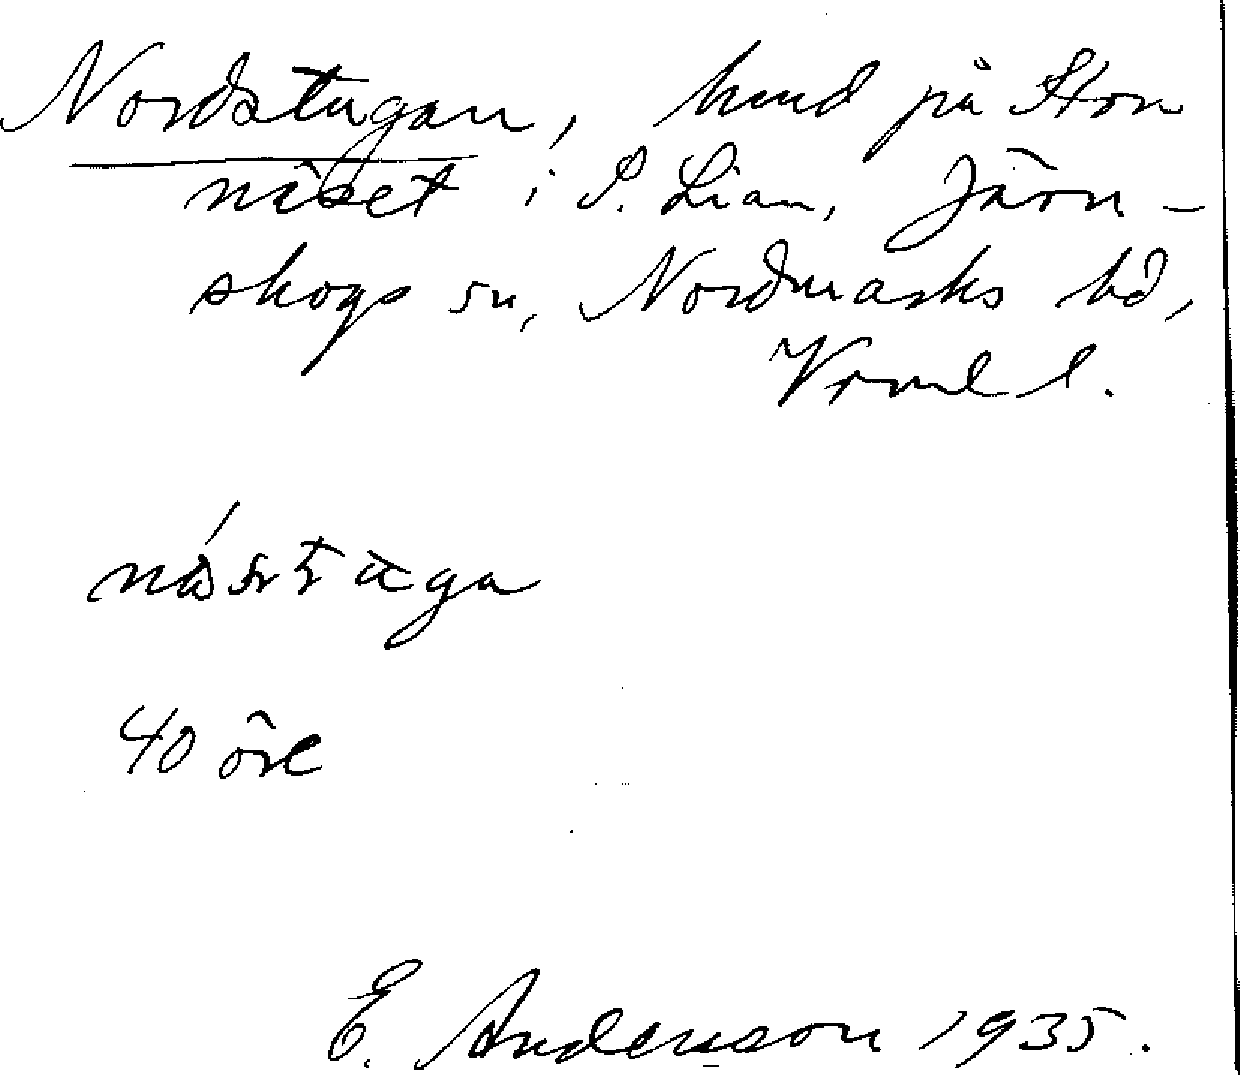 Nordstugan, hmd på Stom
näset i S. Lian, Järn-
skogs sn, Nordmarks hd,
Vrml l.
40 öre
E. Andersson 1935.